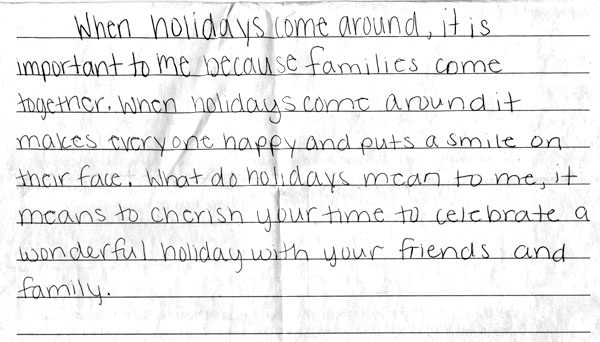 When holidays come around, it is
important to me because families come
together. When holidays come around it
makes everyone happy and puts a smile on
their face. What do holidays mean to me, it
means to cherish your time to celebrate a
wonderful holiday with your friends and
family.